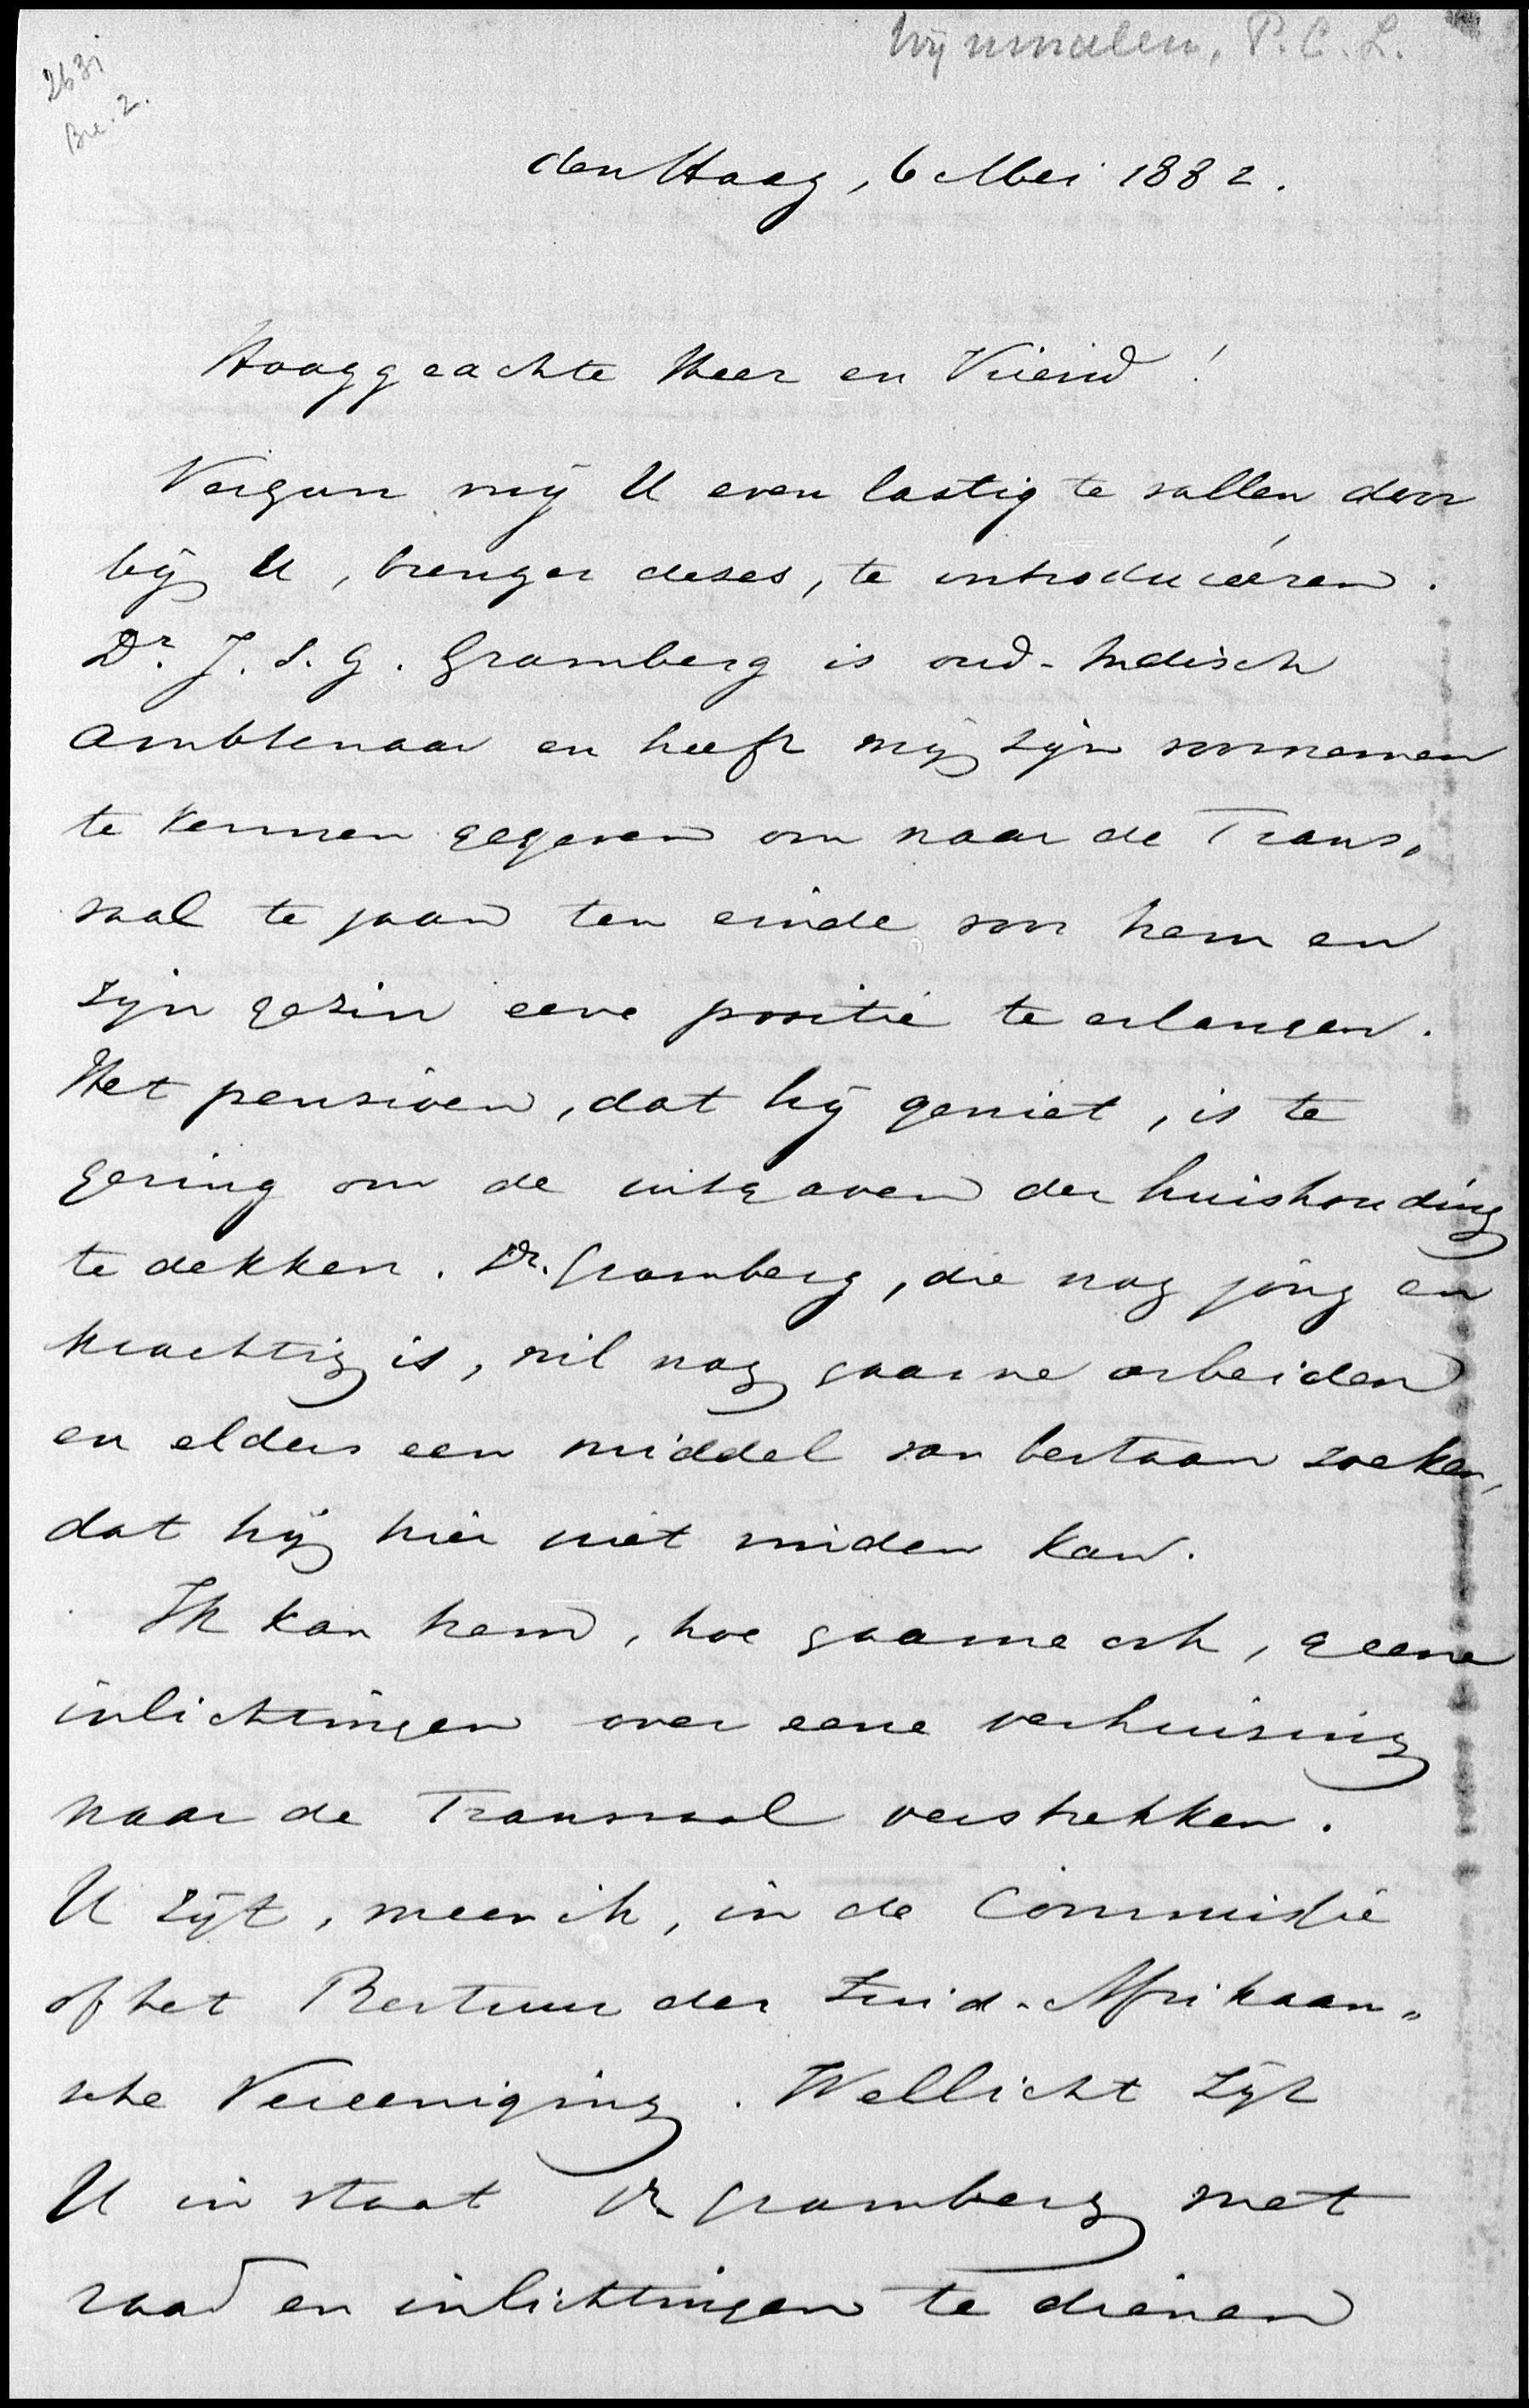 Wijnmalen, T. C. L.
263i
Bre. 2.
den Haag, 6 Mei 1882.
Hooggeachte Heer en Vriend!
Vergun mij U even lastig te vallen door
bij U, brenger dezes, te introducéeren.
Dr. J. S. G. Gramberg is oud-Indisch
ambtenaar en heeft mij zijn voornemen
te kennen gegeven om naar de Trans„
vaal te gaan ten einde voor hem en
zijn gezin eene positie te erlangen.
Het pensioen, dat hij geniet, is te
gering om de uitgaven der huishouding
te dekken. Dr. Gramberg, die nog jong en
krachtig is, wil nog gaarne arbeiden
en elders een middel van bestaan zoeken,
dat hij hier niet vinden kan.
Ik kan hem, hoe gaarne ook, geene
inlichtingen over eene verhuizing
naar de Transvaal verstrekken.
U zijt, meen ik, in de Commissie
of het Bestuur der Zuid-Afrikaan„
sche Vereeniging. Wellicht zijt
U in staat Dr. Gramberg met
raad en inlichtingen te dienen